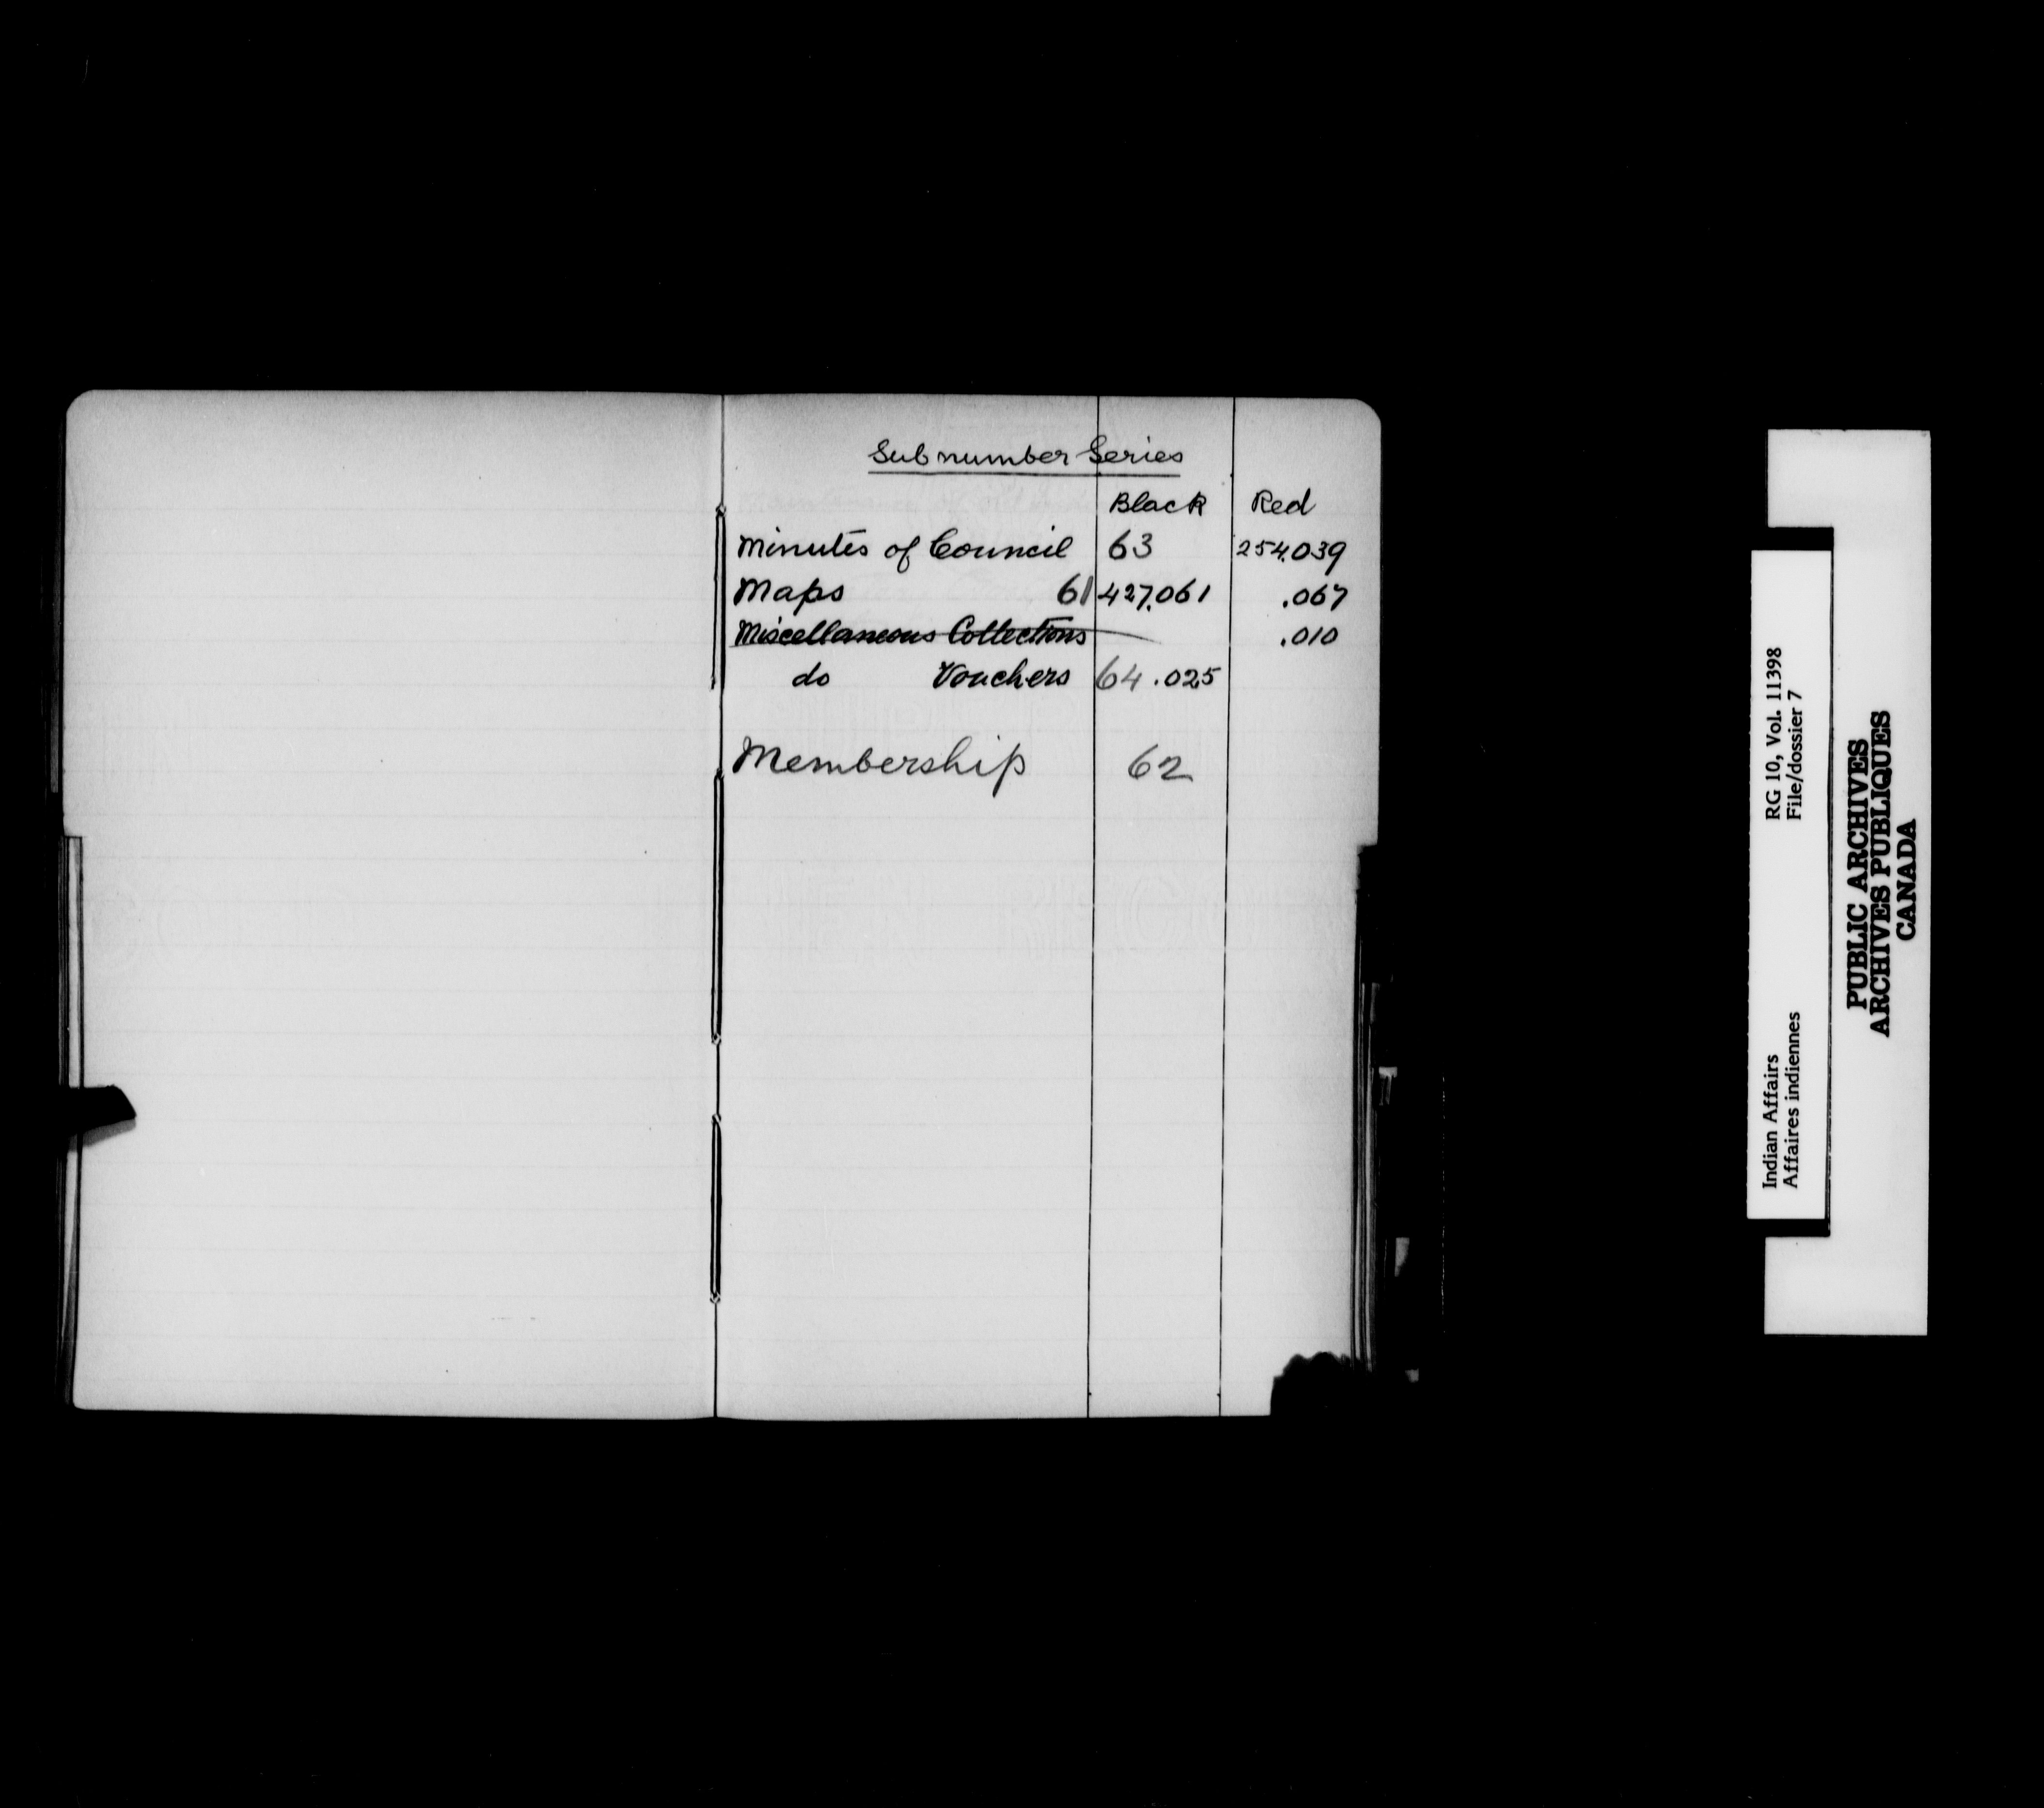 Subnumber Series
Black Red
Minutes of Council 63 254.039
Maps 61 427.061 .067
Miscellaneous Collections .010
do Vouchers 64 .025
Membership 62
Indian Affairs RG 10, Vol. 11398
Affaires indiennes File/dossier 7
PUBLIC ARCHIVES
ARCHIVES PUBLIQUES
CANADA